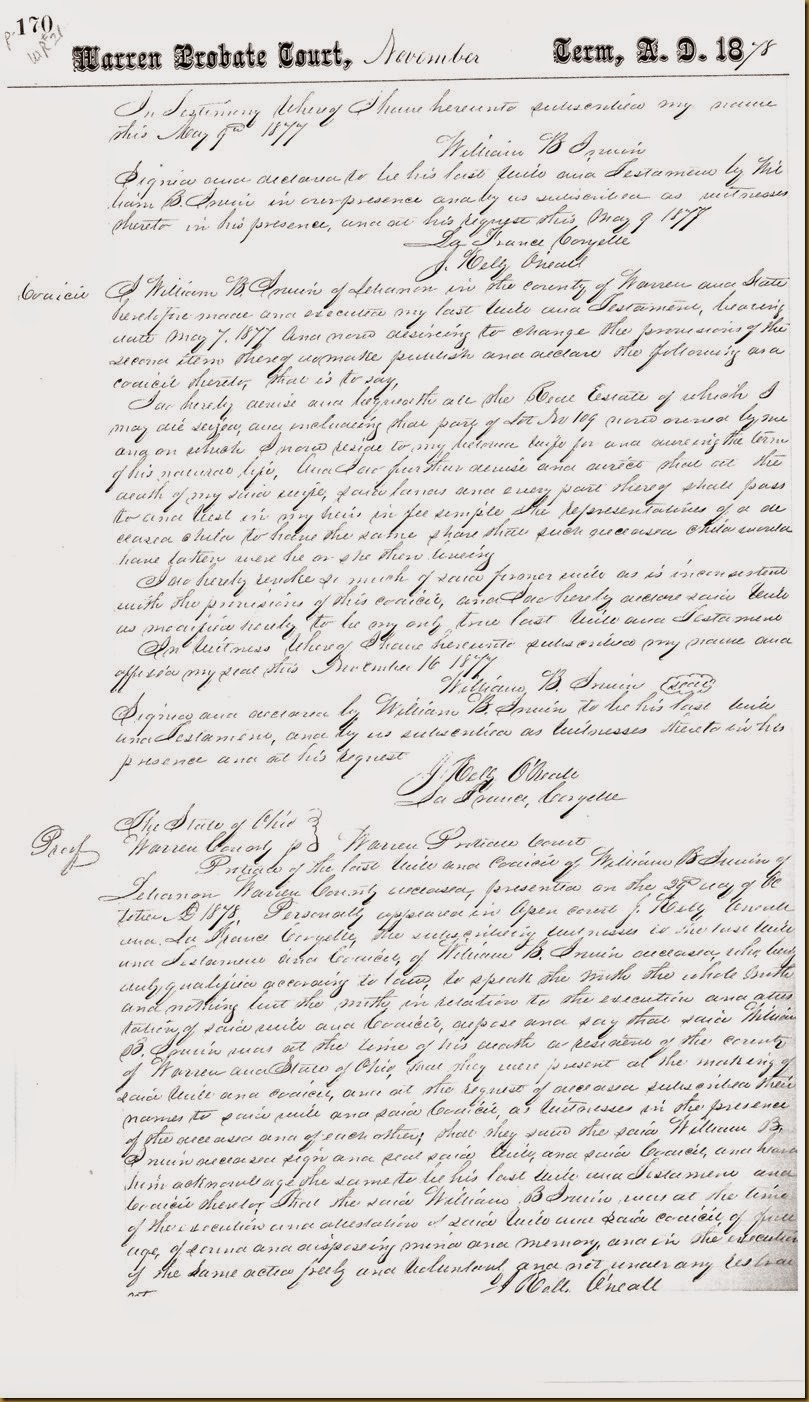 170
Warren Probate Court, November Term, A. D. 1878
In Testimony Whereof I have hereunto subscribed my name
this May 7th 1877
William B Irwin
Signed and declared to be his last Will and Testament by Wil
liam B. Irwin in our presence and by us subscribed as witnesses
thereto in his presence, and at his request this May 9 1877
La France Coryelle
J. Kelly O'Neall
Codicil I William B. Irwin of Lebanon in the county of Warren and State
heretofore made and executed my last Will and Testament, bearing
date May 7, 1877 And now desiring to change the provisions of the
second item thereof do make publish and declare the following as a
codicil thereto, that is to say,
I do hereby devise and bequeath all the Real Estate of which I
may die seized, and including that part of Lot No 109 now owned by me
and on which I now reside to my beloved wife for and during the term
of his natural life, And I do further devise and direct that at the
death of my said wife, said lands and every part thereof shall pass
to and vest in my heirs in fee simple the representatives of a de
ceased child to have the same share that such deceased child would
have taken were he or she then liveing
I do hereby revoke so much of said former will as is inconsistent
with the provisions of this codicil, and I do hereby declare said Will
as modified hereby to be my only true last Will and Testament
In Witness Whereof I have hereunto subscribed my name and
affixed my seal this November 16 1877
William, B. Irwin (seal)
Signed and declared by William B. Irwin to be his last Will
and Testament, and by us subscribed as Witnesses thereto in his
presence and at his request
J. Kelly O'Neall
La France, Coryelle
The State of Ohio
Proof Warren County ss Warren Probate Court
Probate of the last Will and Codicil of William B Irwin of
Lebanon Warren County deceased, presented on the 29th day of Oc
tober AD 1878, Personally appeared in Open court J. Kelly Oneall
and La France Coryelle, the subscribing witnesses to the last Will
and Testament and Codicil, of William B. Irwin deceased, who being
duly qualified according to law, to speak the truth the whole truth
and nothing but the truth, in relation to the execution and attes
tation, of said will and Codicil, depose and say that said William
B. Irwin was at the time of his death a resident of the county
of Warren and State of Ohio, that they were present at the making of
said Will and codicil, and at the request of deceased subscribed their
names to said will and said Codicil, as Witnesses in the presence
of the deceased and of each other; that they saw the said William B.
Irwin deceased sign and seal said Will, and said Codicil, and heard
him acknowledge the same to be his last Will and Testament and
Codicil thereto, That the said William, B Irwin, was at the time
of the execution and attestation of said Will and said codicil, of full
age, of sound and disposing mind and memory, and in the execution
of the same acted freely and Voluntarily and not under any restrai
J Kelly Oneall